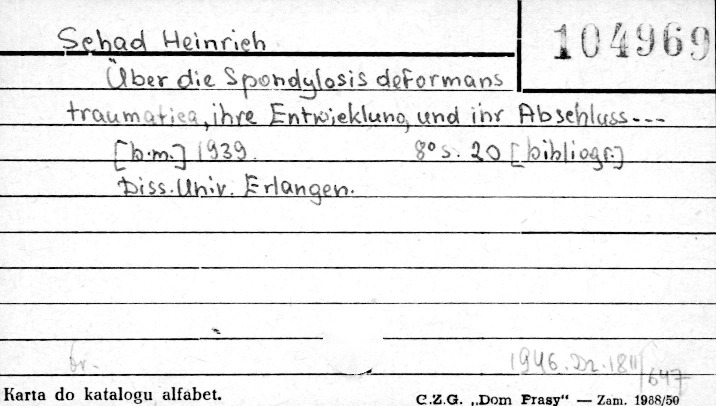 Schad Heinrich
104969
Über die Spondylosis deformans
traumatica, ihre Entwicklung, und ihr Abschluss---
[b.m.] 1939. 8° s. 20 [bibliogr.]
Diss. Univ. Erlangen.
br.
1946. Dz. 1811/647
Karta do katalogu alfabet.
C.Z.G. „Dom Prasy" — Zam. 1988/50